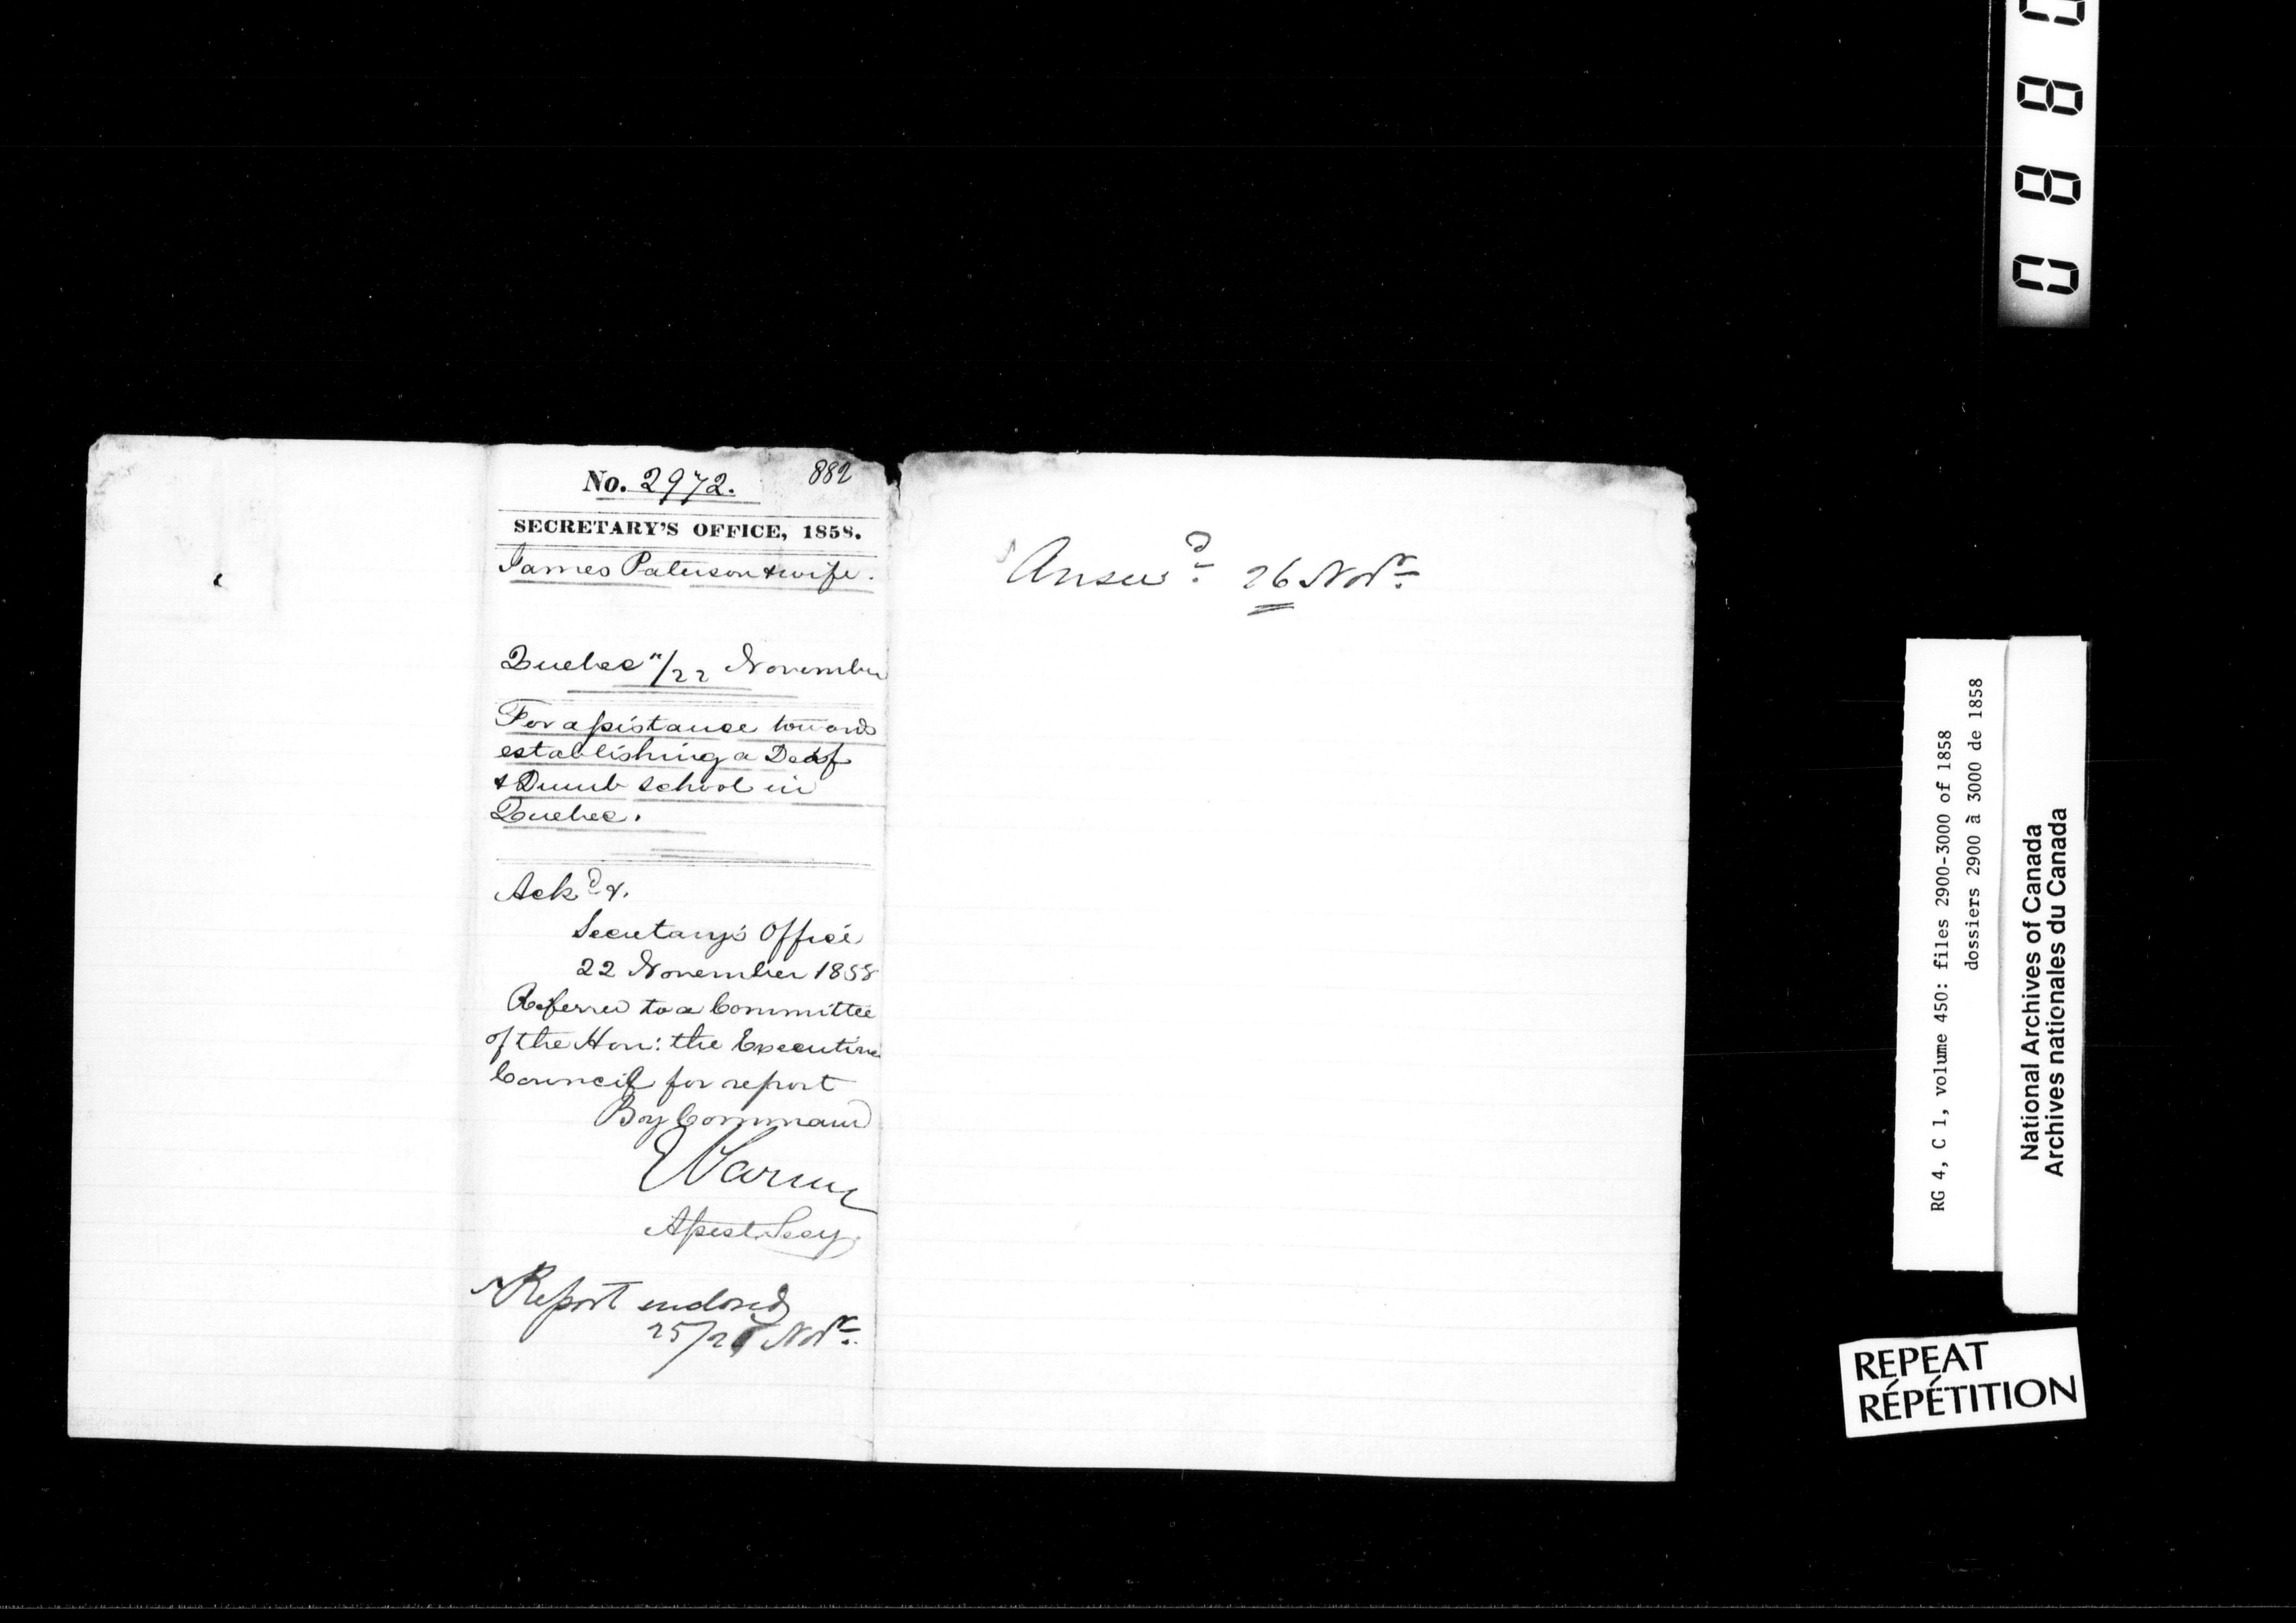 No. 2972. 882
SECRETARY'S OFFICE, 1858.
James Paterson & wife.
Quebec "/22 November
For assistance towards
establishing a Deaf
& Dumb school in
Quebec.
Ackd &.
Secretary's Office
22 November 1858
Referred to a Committee
of the Hon: the Executive
Council for report
By Command
Asist Secy
Report enclosed
25/26 Novr.
Answd. 26 Novr.
0880
RG 4, C 1, volume 450: files 2900-3000 of 1858
dossiers 2900 à 3000 de 1858
National Archives of Canada
Archives nationales du Canada
REPEAT
RÉPÉTITION